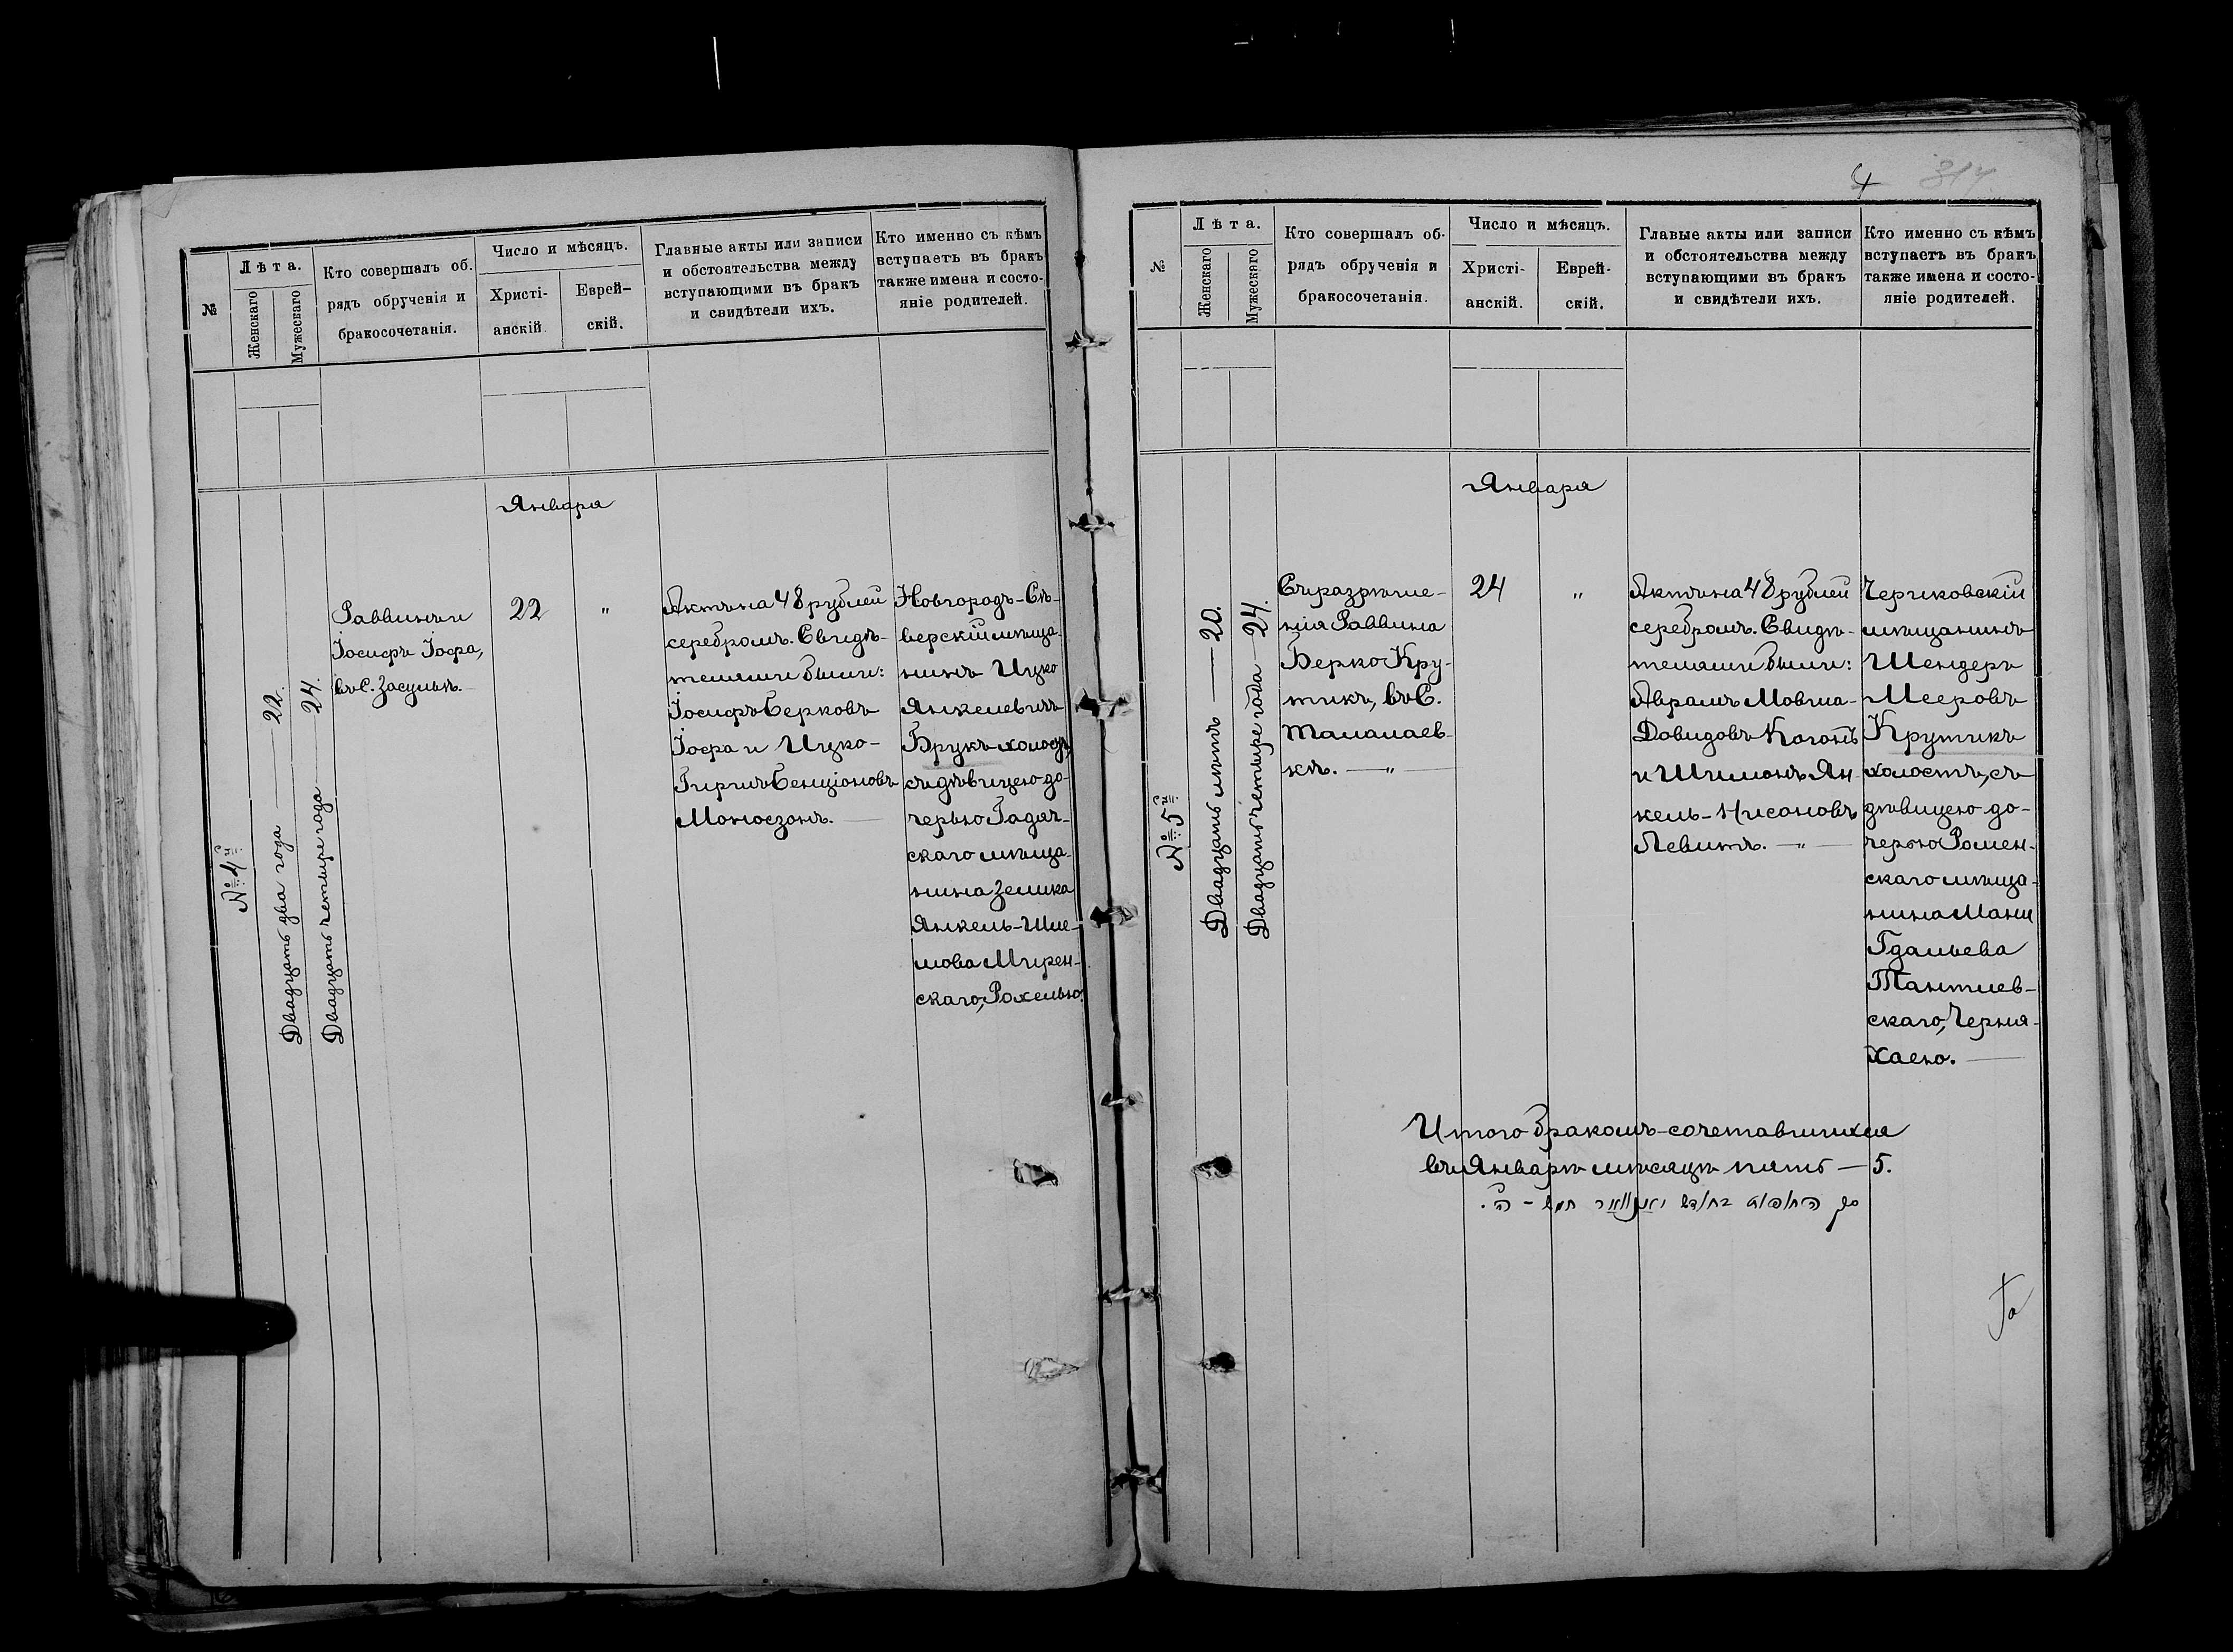 №
Лѣта.
Женскаго
Мужескаго
Кто совершалъ об.
рядъ обрученія и
бракосочетанія.
Число и мѣсяцъ.
Христі-
анскій.
Еврей-
скій.
Главные акты или записи
и обстоятельства между
вступающими въ бракъ
и свидѣтели ихъ.
Кто именно съ кѣмъ
вступаетъ въ бракъ
также имена и состо-
яніе родителей.
Января
№ 4й
Двадцать два года — 22.
Двадцать четыре года 24.
Раввинъ
Іосифъ Іофа,
въ С. Засульѣ.
22
"
Актъ на 48 рублей
серебромъ. Свидѣ-
телями были:
Іосифъ Берковъ
Іофа и Ицко-
Гиршъ Бенціоновъ
Моносзонъ.
Новгородъ-Сѣ-
верскій мѣща-
нинъ Ицко
Янкелевичъ
Брукъ холостъ,
съ дѣвицею до-
черью Гадяч-
скаго мѣща-
нина Зелика
Янкель-Шле-
мова Мирен-
скаго, Рохелью.
4
317
№
Лѣта.
Женскаго
Мужескаго
Кто совершалъ об-
рядъ обрученія и
бракосочетанія.
Число и мѣсяцъ.
Христі-
анскій.
Еврей-
скій.
Главые акты или записи
и обстоятельства между
вступающими въ бракъ
и свидѣтели ихъ.
Кто именно съ кѣмъ
вступаетъ въ бракъ
также имена и состо-
яніе родителей.
Января
№ 5й
Двадцать лѣтъ — 20.
Двадцать четыре года — 24.
Съ разрѣше-
нія Раввина
Берко Кру-
тикъ, въ С.
Таламаев-
кѣ. — " —
24
"
Актъ на 48 рублей
серебромъ. Свидѣ-
телями были:
Аврамъ Мовша-
Довидовъ Коганъ
и Шимонъ Ян-
кель-Нисоновъ
Левитъ. — " —
Чериковскій
мѣщанинъ
Шендеръ
Мееровъ
Крутикъ
холостъ, съ
дѣвицею до-
черью Ромен-
скаго мѣща-
нина Мани
Гдальева
Тантлев-
скаго, Черня-
Хаею.
Итого бракомъ-сочетавшихся
въ Январѣ мѣсяцѣ пять — 5.
סך החופות בחודש יאנוואר חמש - ה'.